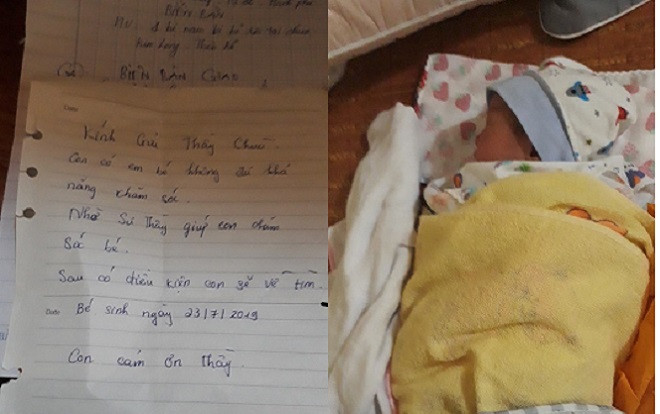 BIÊN BẢN
BIÊN BẢN GIAO
Date
Kính Gửi Thầy Chùa.
Con có em bé không đủ khả
năng chăm sóc.
Nhờ Sư Thầy giúp con chăm
Sóc bé.
Sau có điều kiện con sẽ về tìm.
Date Bé sinh ngày 23/7/2019
Con cảm ơn Thầy.